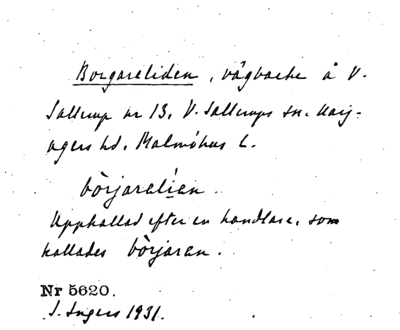 Borgareliden, vägbacke å V.
Sallerup nr 13, V. Sallerups sn. Harj-
agers hd, Malmöhus L.
bòrjaralien.
Uppkallad efter en handlare, som
kallades bòrjaran.
Nr 5620.
I. Ingers 1931.